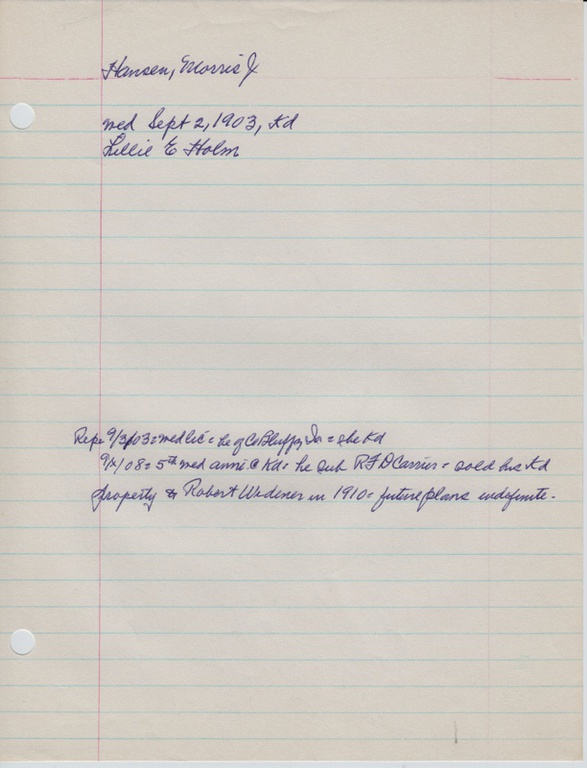 Hansen, Morris J
wed Sept 2, 1903, Kd
Lillie E Holm
Rep= 9/3/03= wed lic= he of Co Bluffs, Ia = she Kd
9/ /08= 5th wed anni @ Kd= he sub RFD Carrier= sold his Kd
property to Robert Wedener in 1910= future plans indefinite.